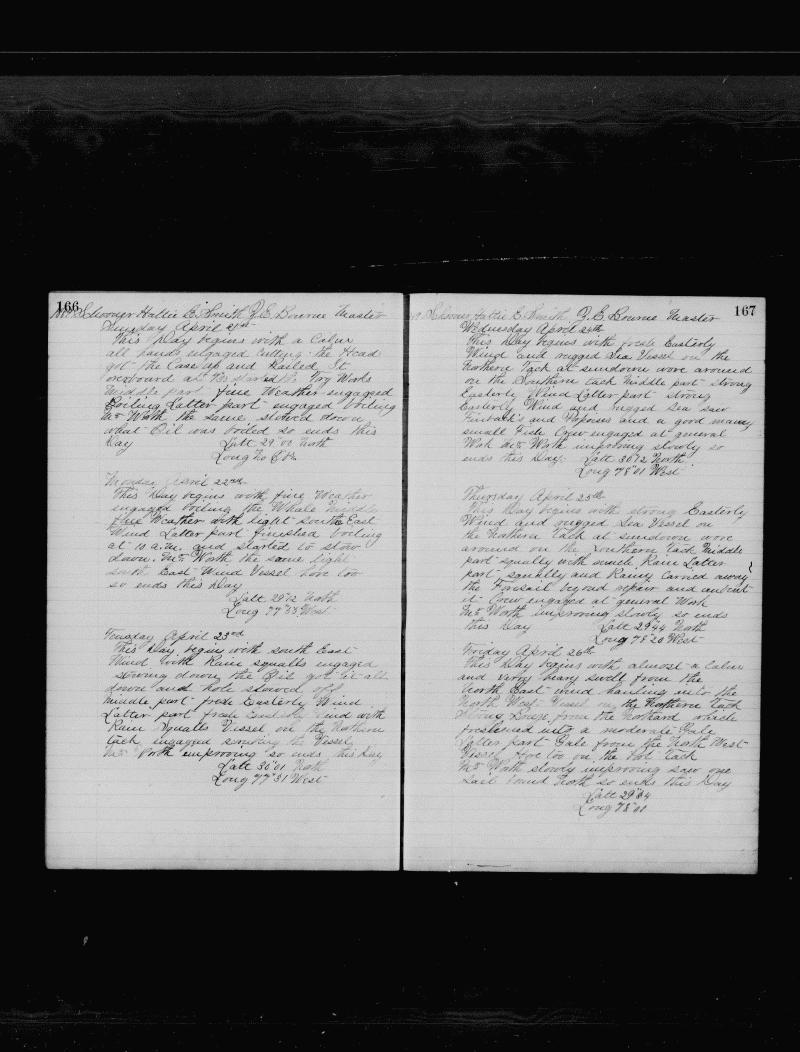 166
Schooner Hattie E. Smith F. E. Bourne Master
Sunday April 21st
This Day begins with a Calm
all hands engaged Cutting the Head
got the Case up and Bailed It
overboard at Started Try Works
middle part fine Weather engaged
Boiling Latter part engaged boiling
Mr Worth the same stowed down
what Oil was boiled so ends this
Day Latt 29°00 North
Long No Obs
Monday April 22nd
This Day begins with fine Weather
engaged boiling the Whale middle
fine Weather with light South East
Wind Latter part finished boiling
at 10 a.m. and started to stow
down. Mr Worth the same light
South East Wind Vessel hove too
so ends this Day
Latt 29°12 North
Long 77°53 West
Tuesday April 23rd
This Day begins with south East
Wind with Rain squalls engaged
stowing down the Oil got it all
down and hole stowed off
middle part fresh Easterly Wind
Latter part fresh Easterly Wind with
Rain Squalls Vessel on the Northern
tack engaged scrubing the Vessel
Mr Worth improoving so ends this Day
Latt 30°01 North
Long 77°31 West
167
Schooner Hattie E. Smith F. E. Bourne Master
Wednesday April 24th
This Day begins with fresh Easterly
Wind and rugged Sea Vessel on the
Northern Tack at sundown wore around
on the Southern tack middle part strong
Easterly Wind Latter part strong
Easterly Wind and rugged Sea saw
Finbacks and Poposes and a good maney
small Fish Crew engaged at general
Work Mr Worth improoving slowly so
ends this Day. Latt 30°12 North
Long 78°01 West
Thursday April 25th
This Day begins with strong Easterly
Wind and rugged Sea Vessel on
the Northern Tack at sundown wore
around on the Southern Tack Middle
part squally with much Rain Latter
part squally and Rainy Carried away
the Foresail beyond repair and unbent
it Crew engaged at general Work
Mr Worth improoving slowly so ends
this Day Latt 29°44 North
Long 78°20 West
Friday April 26th
This Day begins with almost a Calm
and verry heavy swell from the
North East wind hauling into the
North West Vessel on the Northern Tack
strong Breeze from the Northard which
freshened into a moderate Gale
Latter part Gale from the North West
Vessel Hove too on the Port Tack
Mr Worth slowly improoving saw one
Sail bound North so ends this Day
Latt 29°34
Long 78°01